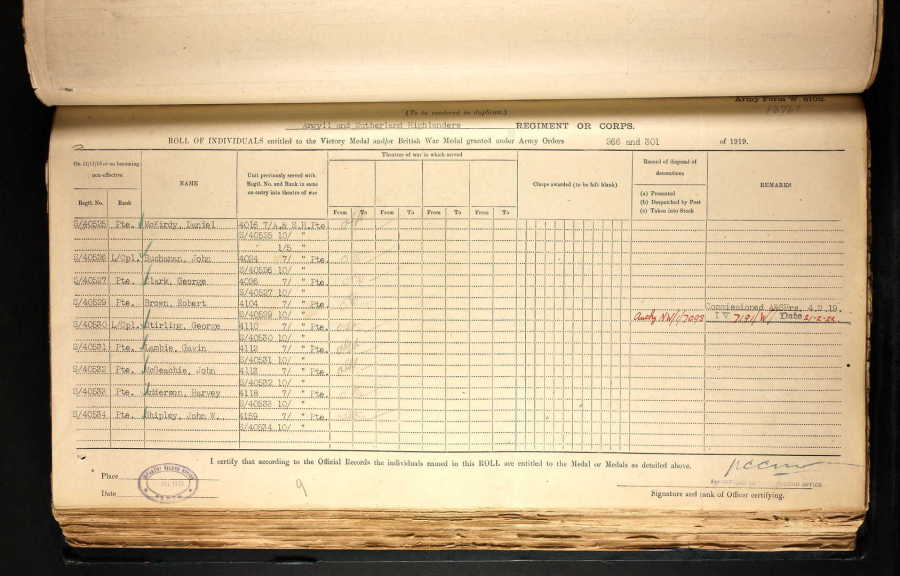 Army Form W. 5102.
(To be rendered in duplicate.)
Argyll and Sutherland Highlanders REGIMENT OR CORPS.
ROLL OF INDIVIDUALS entitled to the Victory Medal and/or British War Medal granted under Army Orders 266 and 301 of 1919.
On 11/11/18 or on becoming non-effective
Regtl. No.
Rank
NAME
Unit previously served with
Regtl. No. and Rank in same
on entry into theatre of war
Theatres of war in which served
From To From To From To From To
Clasps awarded (to be left blank)
Record of disposal of
decorations
(a) Presented
(b) Despatched by Post
(c) Taken into Stock
REMARKS
S/40525 Pte. McKirdy, Daniel 4016 7/A.& S.H.Pte.
S/40525 10/ "
" 1/5 "
S/40526 L/Cpl. Buchanan, John 4024 7/ " Pte.
S/40526 10/ "
S/40527 Pte. Clark, George 4096 7/ " Pte.
S/40527 10/ "
S/40529 Pte. Brown, Robert 4104 7/ " Pte.
S/40529 10/ " Commissioned 4.2.19.
S/40530 L/Cpl. Stirling, George 4110 7/ " Pte. Auth NW/1/7093 IV 7191/W/ Date 21-2-22
S/40530 10/ "
S/40531 Pte. Lambie, Gavin 4112 7/ " Pte.
S/40531 10/ "
S/40532 Pte. McGeachie, John 4113 7/ " Pte.
S/40532 10/ "
S/40533 Pte. Anderson, Harvey 4118 7/ " Pte.
S/40533 10/ "
S/40534 Pte. Shipley, John W. 4159 7/ " Pte.
S/40534 10/ "
I certify that according to the Official Records the individuals named in this ROLL are entitled to the Medal or Medals as detailed above.
Place
INFANTRY RECORD OFFICE
PERTH
Date
9
Signature and rank of Officer certifying.